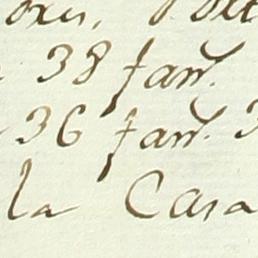 38 fan.
36 fan. 3
la Casa